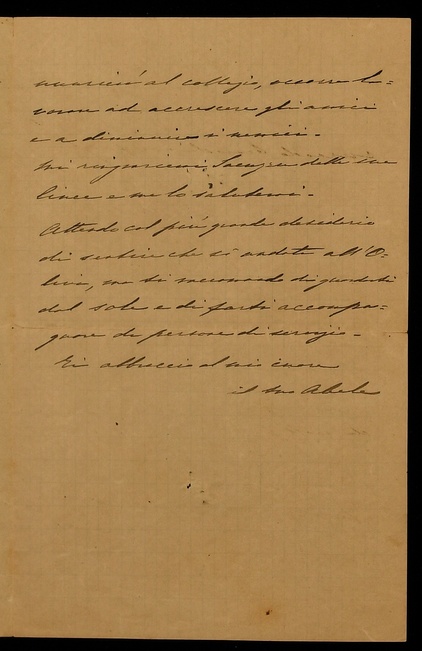 al collegio, occorre la=
vorare ad accrescere gli amici
e a diminuire i nemici.
Mi ringrazierai delle sue
linee e me lo saluterai.
Attendo col più grande desiderio
di sentire che si andata all'O=
liva, ma ti raccomando di guardarti
dal sole e di farti accompa=
gnare da persone di servizio.
Ti abbraccio al mio cuore
il tuo Abele